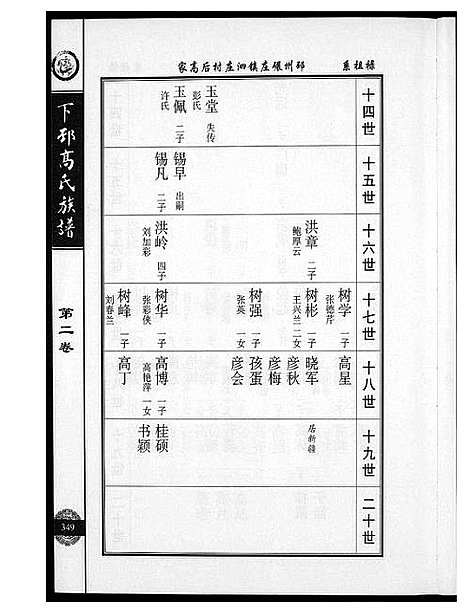 下邳高氏族谱
第二卷
349
家高后村庄泗镇庄碾州邳
系祖禄
十四世
玉堂 失传
彭氏
玉佩 二子
许氏
十五世
锡早 出嗣
锡凡 二子
十六世
洪章 二子
鲍厚云
洪岭 四子
刘加彩
十七世
树学 一子
张德芹
树彬 一子
王兴兰 二女
树强 一子
张英 一女
树华 一子
张彩侠
树峰 一子
刘春兰
十八世
高星
晓军
彦秋
彦梅
孩蛋
彦会
高博 一子
高艳萍 一女
高丁
十九世
居新疆
桂硕
书颖
二十世